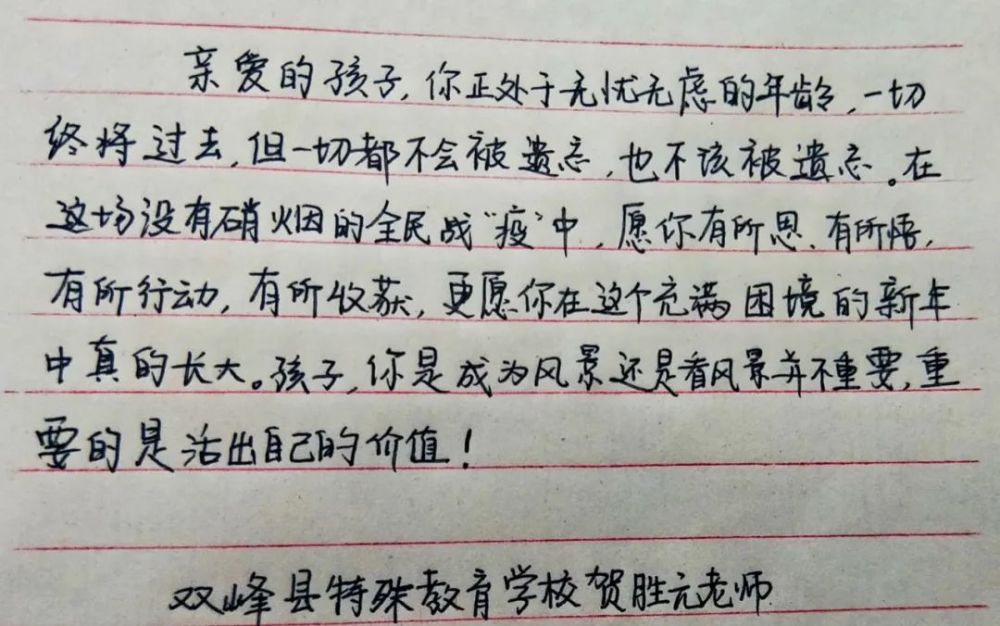 亲爱的孩子,你正处于无忧无虑的年龄,一切
终将过去,但一切都不会被遗忘,也不该被遗忘。在
这场没有硝烟的全民战“疫”中,愿你有所思、有所悟,
有所行动,有所收获,更愿你在这个充满困境的新年
中真的长大。孩子,你是成为风景还是看风景并不重要,重
要的是活出自己的价值!
双峰县特殊教育学校贺胜元老师